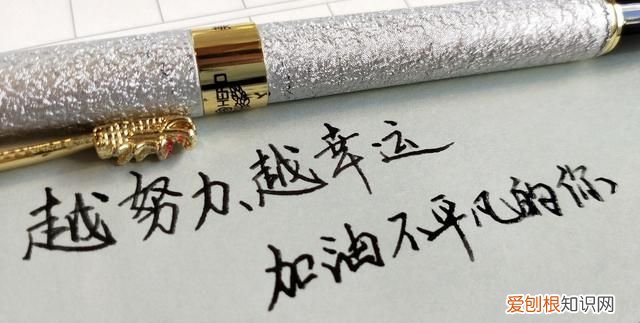 越努力、越幸运
加油不平凡的你、
爱刨根知识网